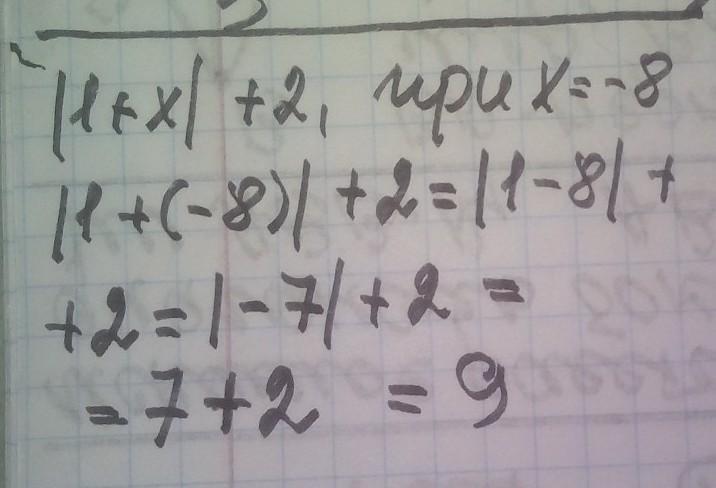 |1+x| +2, при x=-8
|1+(-8)| +2=|1-8| +
+2=|-7|+2 =
=7+2 =9